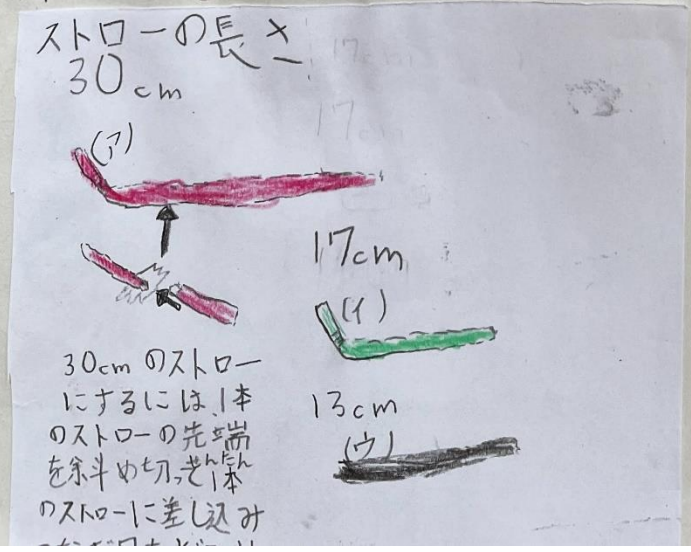 ストローの長さ
30cm
(ア)
17cm
(イ)
13cm
(ウ)
30cmのストロー
にするには、1本
のストローの先端
せんたん
を斜め切って1本
のストローに差し込み